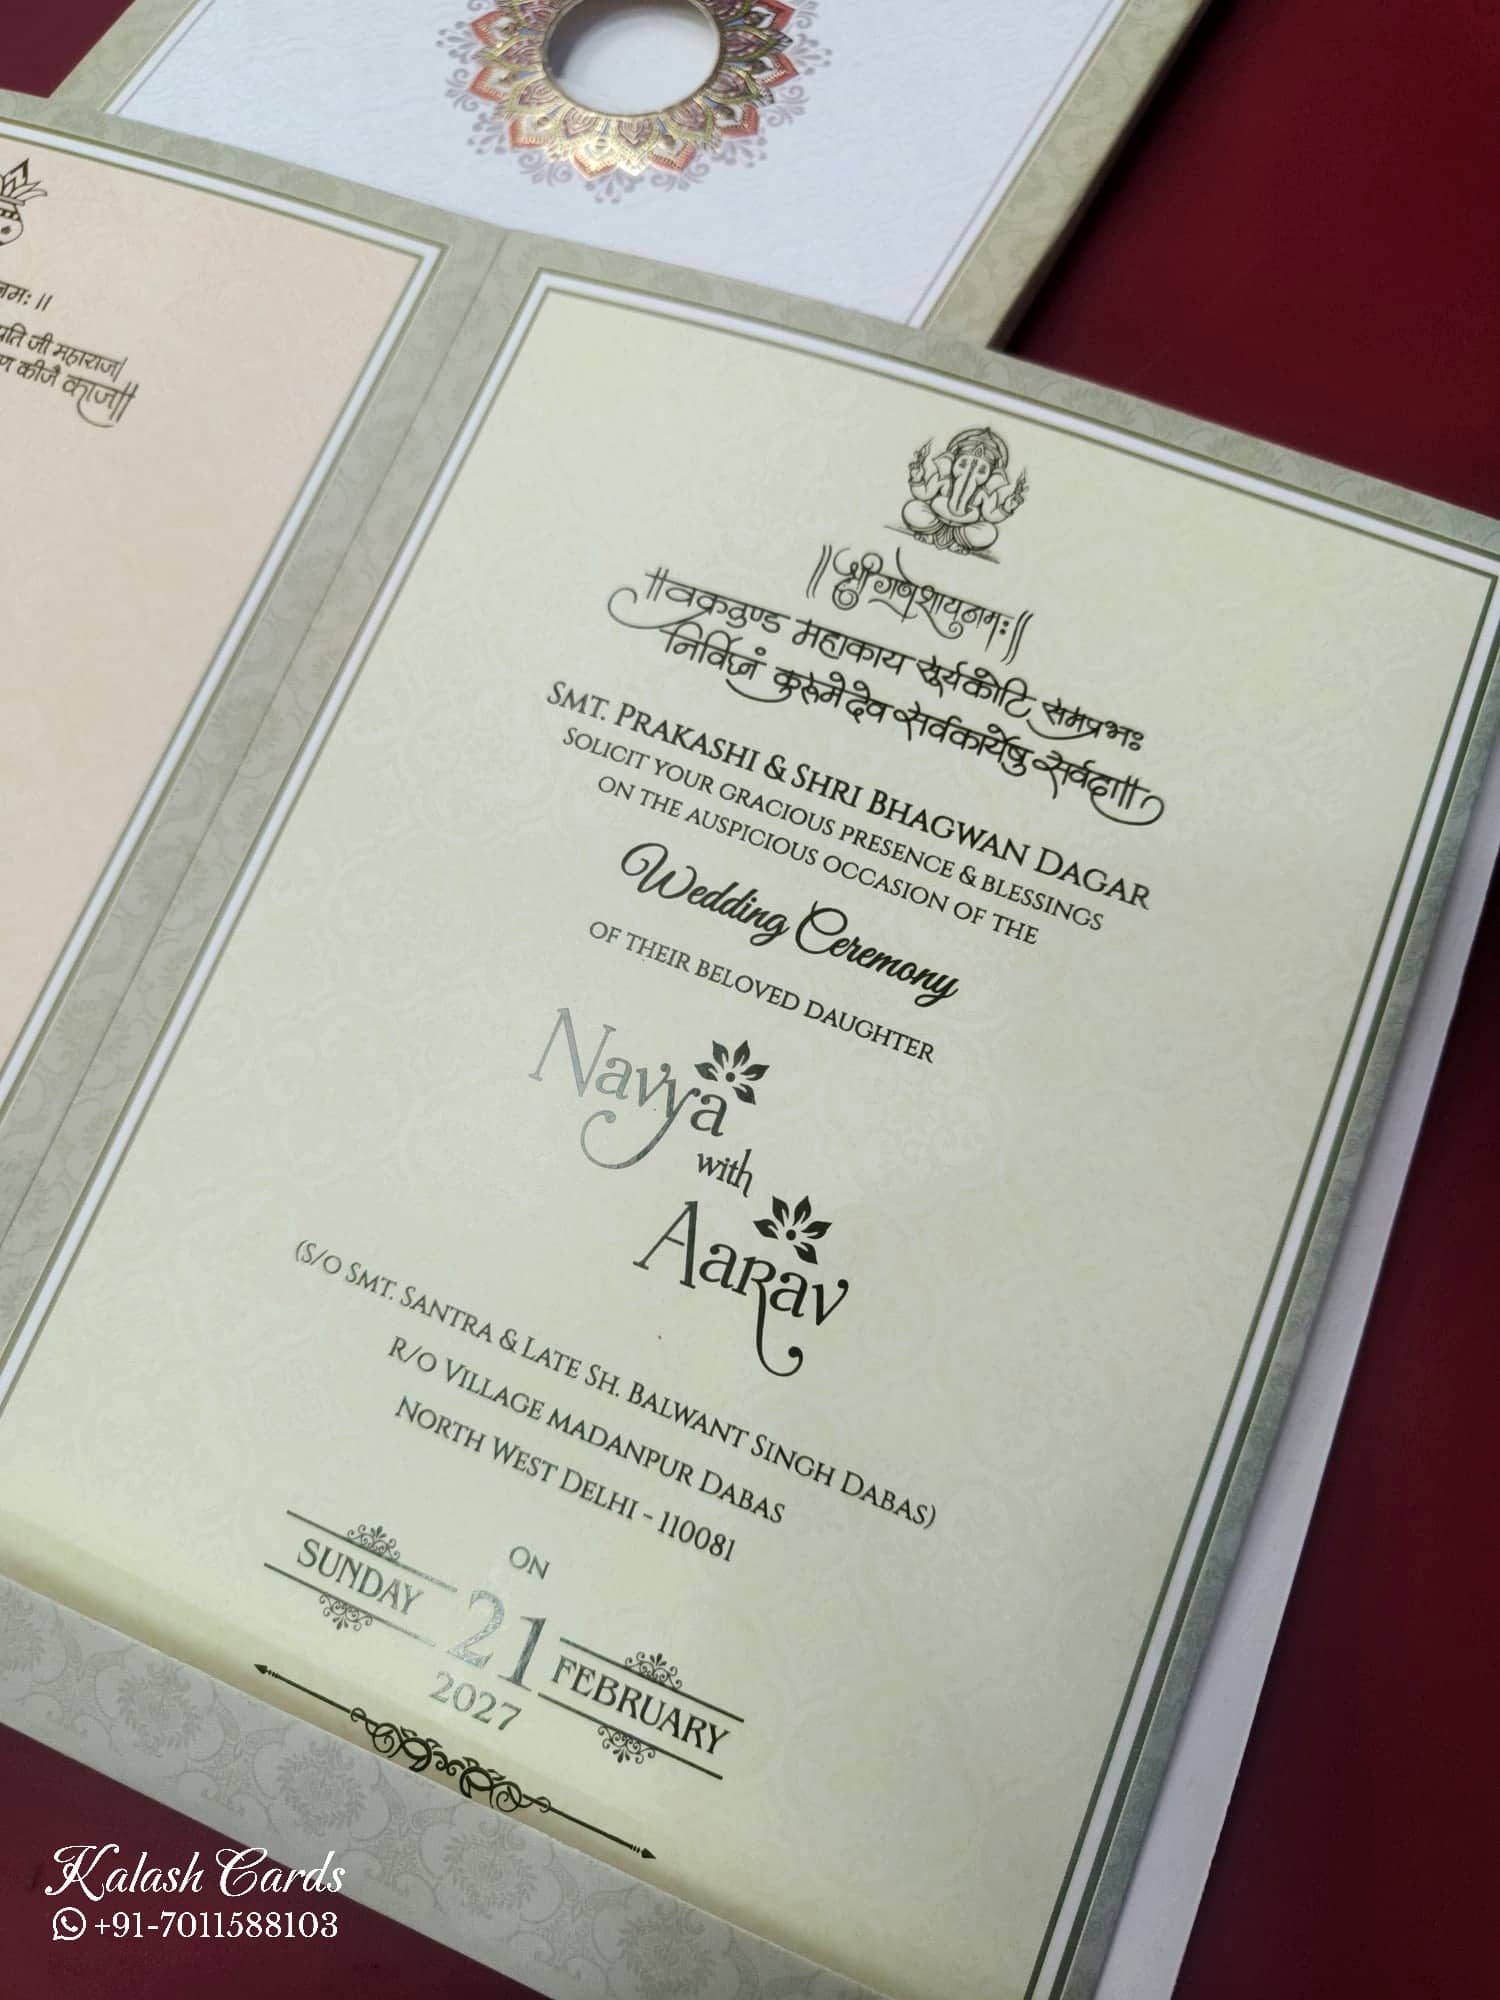 नमः ॥
पति जी महाराज|
कीजै काज||
||श्री गणेशाय नमः||
||वक्रतुण्ड महाकाय सूर्यकोटि समप्रभः
निर्विघ्नं कुरूमे देव सर्वकार्येषु सर्वदा||
SMT. PRAKASHI & SHRI BHAGWAN DAGAR
SOLICIT YOUR GRACIOUS PRESENCE & BLESSINGS
ON THE AUSPICIOUS OCCASION OF THE
Wedding Ceremony
OF THEIR BELOVED DAUGHTER
Navya
with
Aarav
(S/O SMT. SANTRA & LATE SH. BALWANT SINGH DABAS)
R/O VILLAGE MADANPUR DABAS
NORTH WEST DELHI - 110081
ON
SUNDAY 21 FEBRUARY
2027
Kalash Cards
+91-7011588103